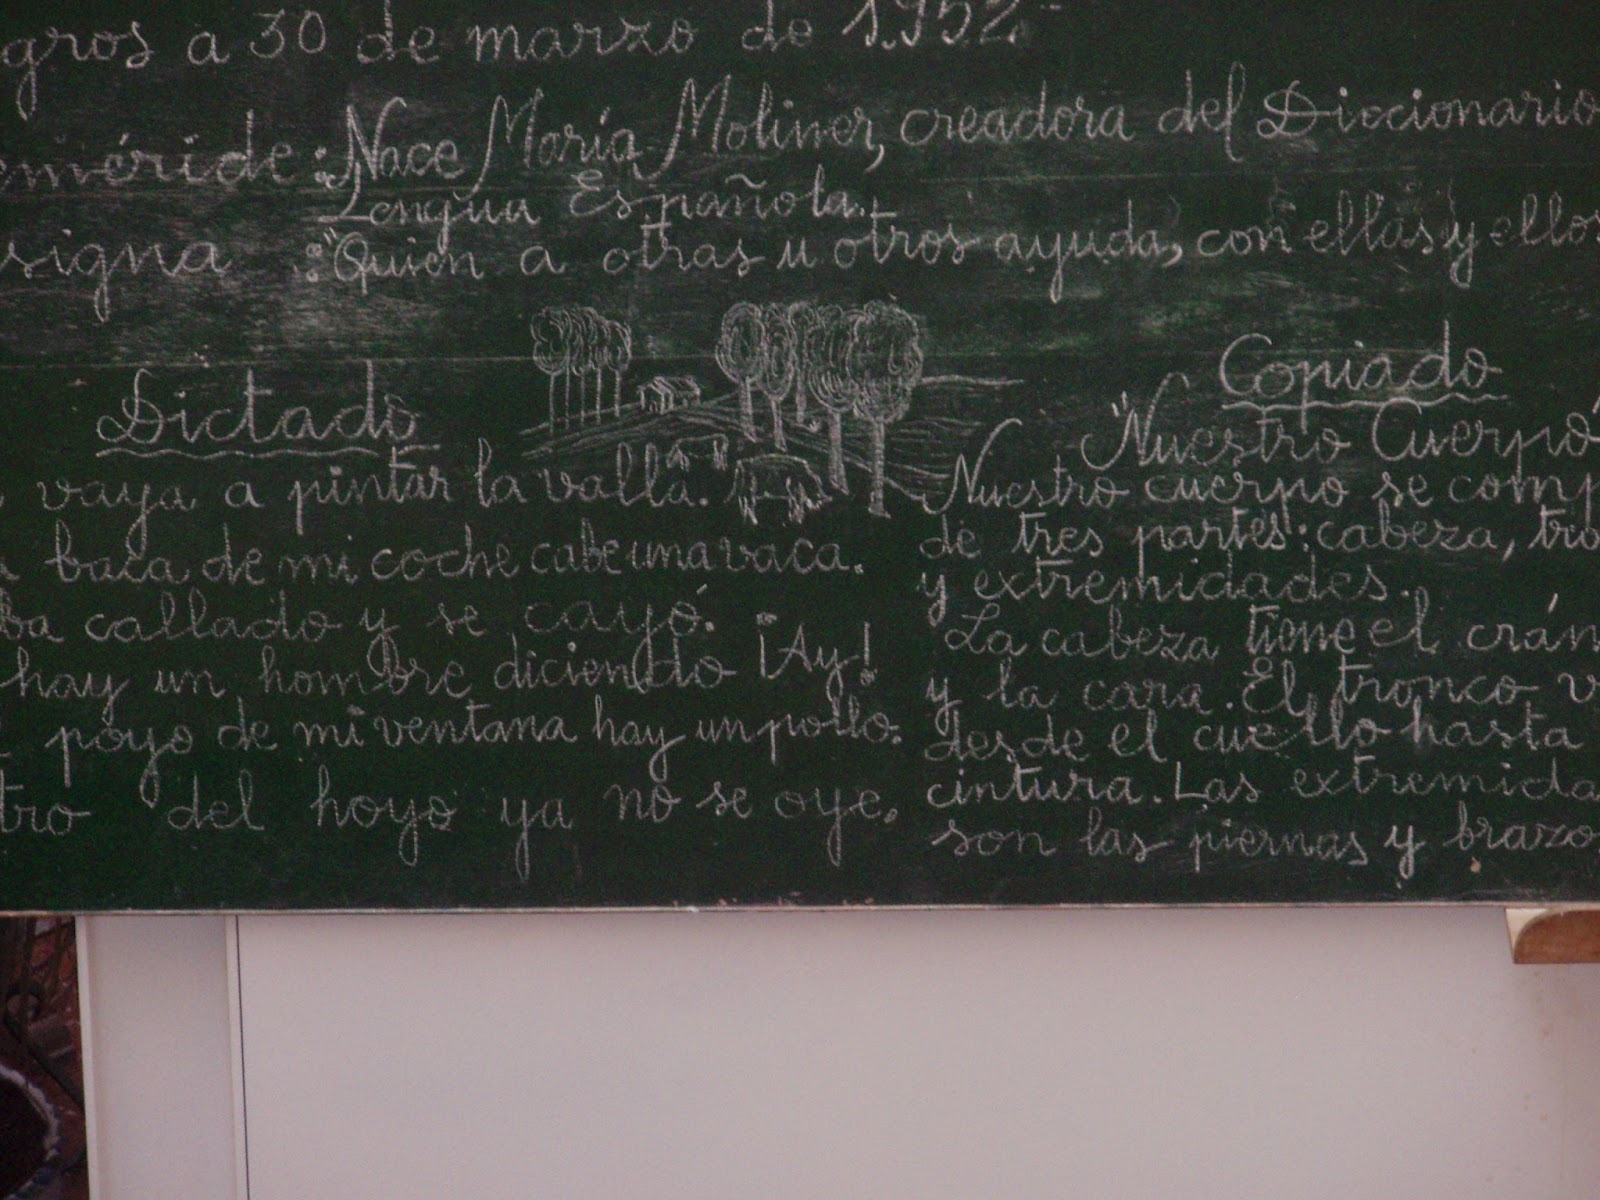 gros a 30 de marzo de 1.952.-
eméride: Nace María Moliner, creadora del Diccionario
Lengua Española.
signa : "Quien a otras u otros ayuda, con ellas y ellos
Dictado
vaya a pintar la valla.
a baca de mi coche cabe una vaca.
ba callado y se cayó.
hay un hombre diciendo ¡Ay!
poyo de mi ventana hay un pollo.
tro del hoyo ya no se oye.
Copiado
"Nuestro Cuerpo"
Nuestro cuerpo se comp
de tres partes: cabeza, tro
y extremidades.
La cabeza tiene el crán
y la cara. El tronco v
desde el cuello hasta
cintura. Las extremida
son las piernas y brazo